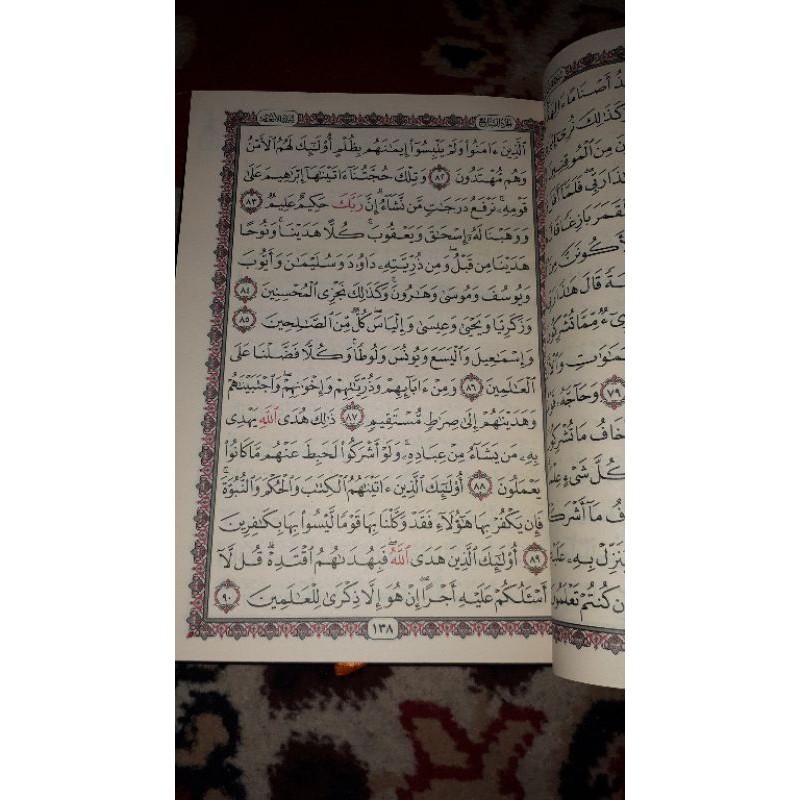 الجزء السابع
سورة الأنعام
ٱلَّذِينَ ءَامَنُوا۟ وَلَمْ يَلْبِسُوٓا۟ إِيمَٰنَهُم بِظُلْمٍ أُو۟لَٰٓئِكَ لَهُمُ ٱلْأَمْنُ
وَهُم مُّهْتَدُونَ ٨٢ وَتِلْكَ حُجَّتُنَآ ءَاتَيْنَٰهَآ إِبْرَٰهِيمَ عَلَىٰ
قَوْمِهِۦ ۚ نَرْفَعُ دَرَجَٰتٍ مَّن نَّشَآءُ ۗ إِنَّ رَبَّكَ حَكِيمٌ عَلِيمٌ ٨٣
وَوَهَبْنَا لَهُۥٓ إِسْحَٰقَ وَيَعْقُوبَ ۚ كُلًّا هَدَيْنَا ۚ وَنُوحًا
هَدَيْنَا مِن قَبْلُ ۖ وَمِن ذُرِّيَّتِهِۦ دَاوُۥدَ وَسُلَيْمَٰنَ وَأَيُّوبَ
وَيُوسُفَ وَمُوسَىٰ وَهَٰرُونَ ۚ وَكَذَٰلِكَ نَجْزِى ٱلْمُحْسِنِينَ ٨٤
وَزَكَرِيَّا وَيَحْيَىٰ وَعِيسَىٰ وَإِلْيَاسَ ۖ كُلٌّ مِّنَ ٱلصَّٰلِحِينَ ٨٥
وَإِسْمَٰعِيلَ وَٱلْيَسَعَ وَيُونُسَ وَلُوطًا ۚ وَكُلًّا فَضَّلْنَا عَلَى
ٱلْعَٰلَمِينَ ٨٦ وَمِنْ ءَابَآئِهِمْ وَذُرِّيَّٰتِهِمْ وَإِخْوَٰنِهِمْ ۖ وَٱجْتَبَيْنَٰهُمْ
وَهَدَيْنَٰهُمْ إِلَىٰ صِرَٰطٍ مُّسْتَقِيمٍ ٨٧ ذَٰلِكَ هُدَى ٱللَّهِ يَهْدِى
بِهِۦ مَن يَشَآءُ مِنْ عِبَادِهِۦ ۚ وَلَوْ أَشْرَكُوا۟ لَحَبِطَ عَنْهُم مَّا كَانُوا۟
يَعْمَلُونَ ٨٨ أُو۟لَٰٓئِكَ ٱلَّذِينَ ءَاتَيْنَٰهُمُ ٱلْكِتَٰبَ وَٱلْحُكْمَ وَٱلنُّبُوَّةَ ۚ
فَإِن يَكْفُرْ بِهَا هَٰٓؤُلَآءِ فَقَدْ وَكَّلْنَا بِهَا قَوْمًا لَّيْسُوا۟ بِهَا بِكَٰفِرِينَ
٨٩ أُو۟لَٰٓئِكَ ٱلَّذِينَ هَدَى ٱللَّهُ ۖ فَبِهُدَىٰهُمُ ٱقْتَدِهْ ۗ قُل لَّآ
أَسْـَٔلُكُمْ عَلَيْهِ أَجْرًا ۖ إِنْ هُوَ إِلَّا ذِكْرَىٰ لِلْعَٰلَمِينَ ٩٠
١٣٨
أَصْنَامًا ءَالِهَةً
وَكَذَٰلِكَ نُرِىٓ
مِنَ ٱلْمُوقِنِينَ
رَبِّى ۖ فَلَمَّآ
ٱلْقَمَرَ بَازِغًا
لَأَكُونَنَّ مِنَ
قَالَ هَٰذَا رَبِّى
مِّمَّا تُشْرِكُونَ
٧٩ وَحَآجَّهُۥ
أَخَافُ مَا تُشْرِكُونَ
كُلَّ شَىْءٍ عِلْمًا
مَآ أَشْرَكْتُمْ
يُنَزِّلْ بِهِۦ عَلَيْكُمْ
إِن كُنتُمْ تَعْلَمُونَ